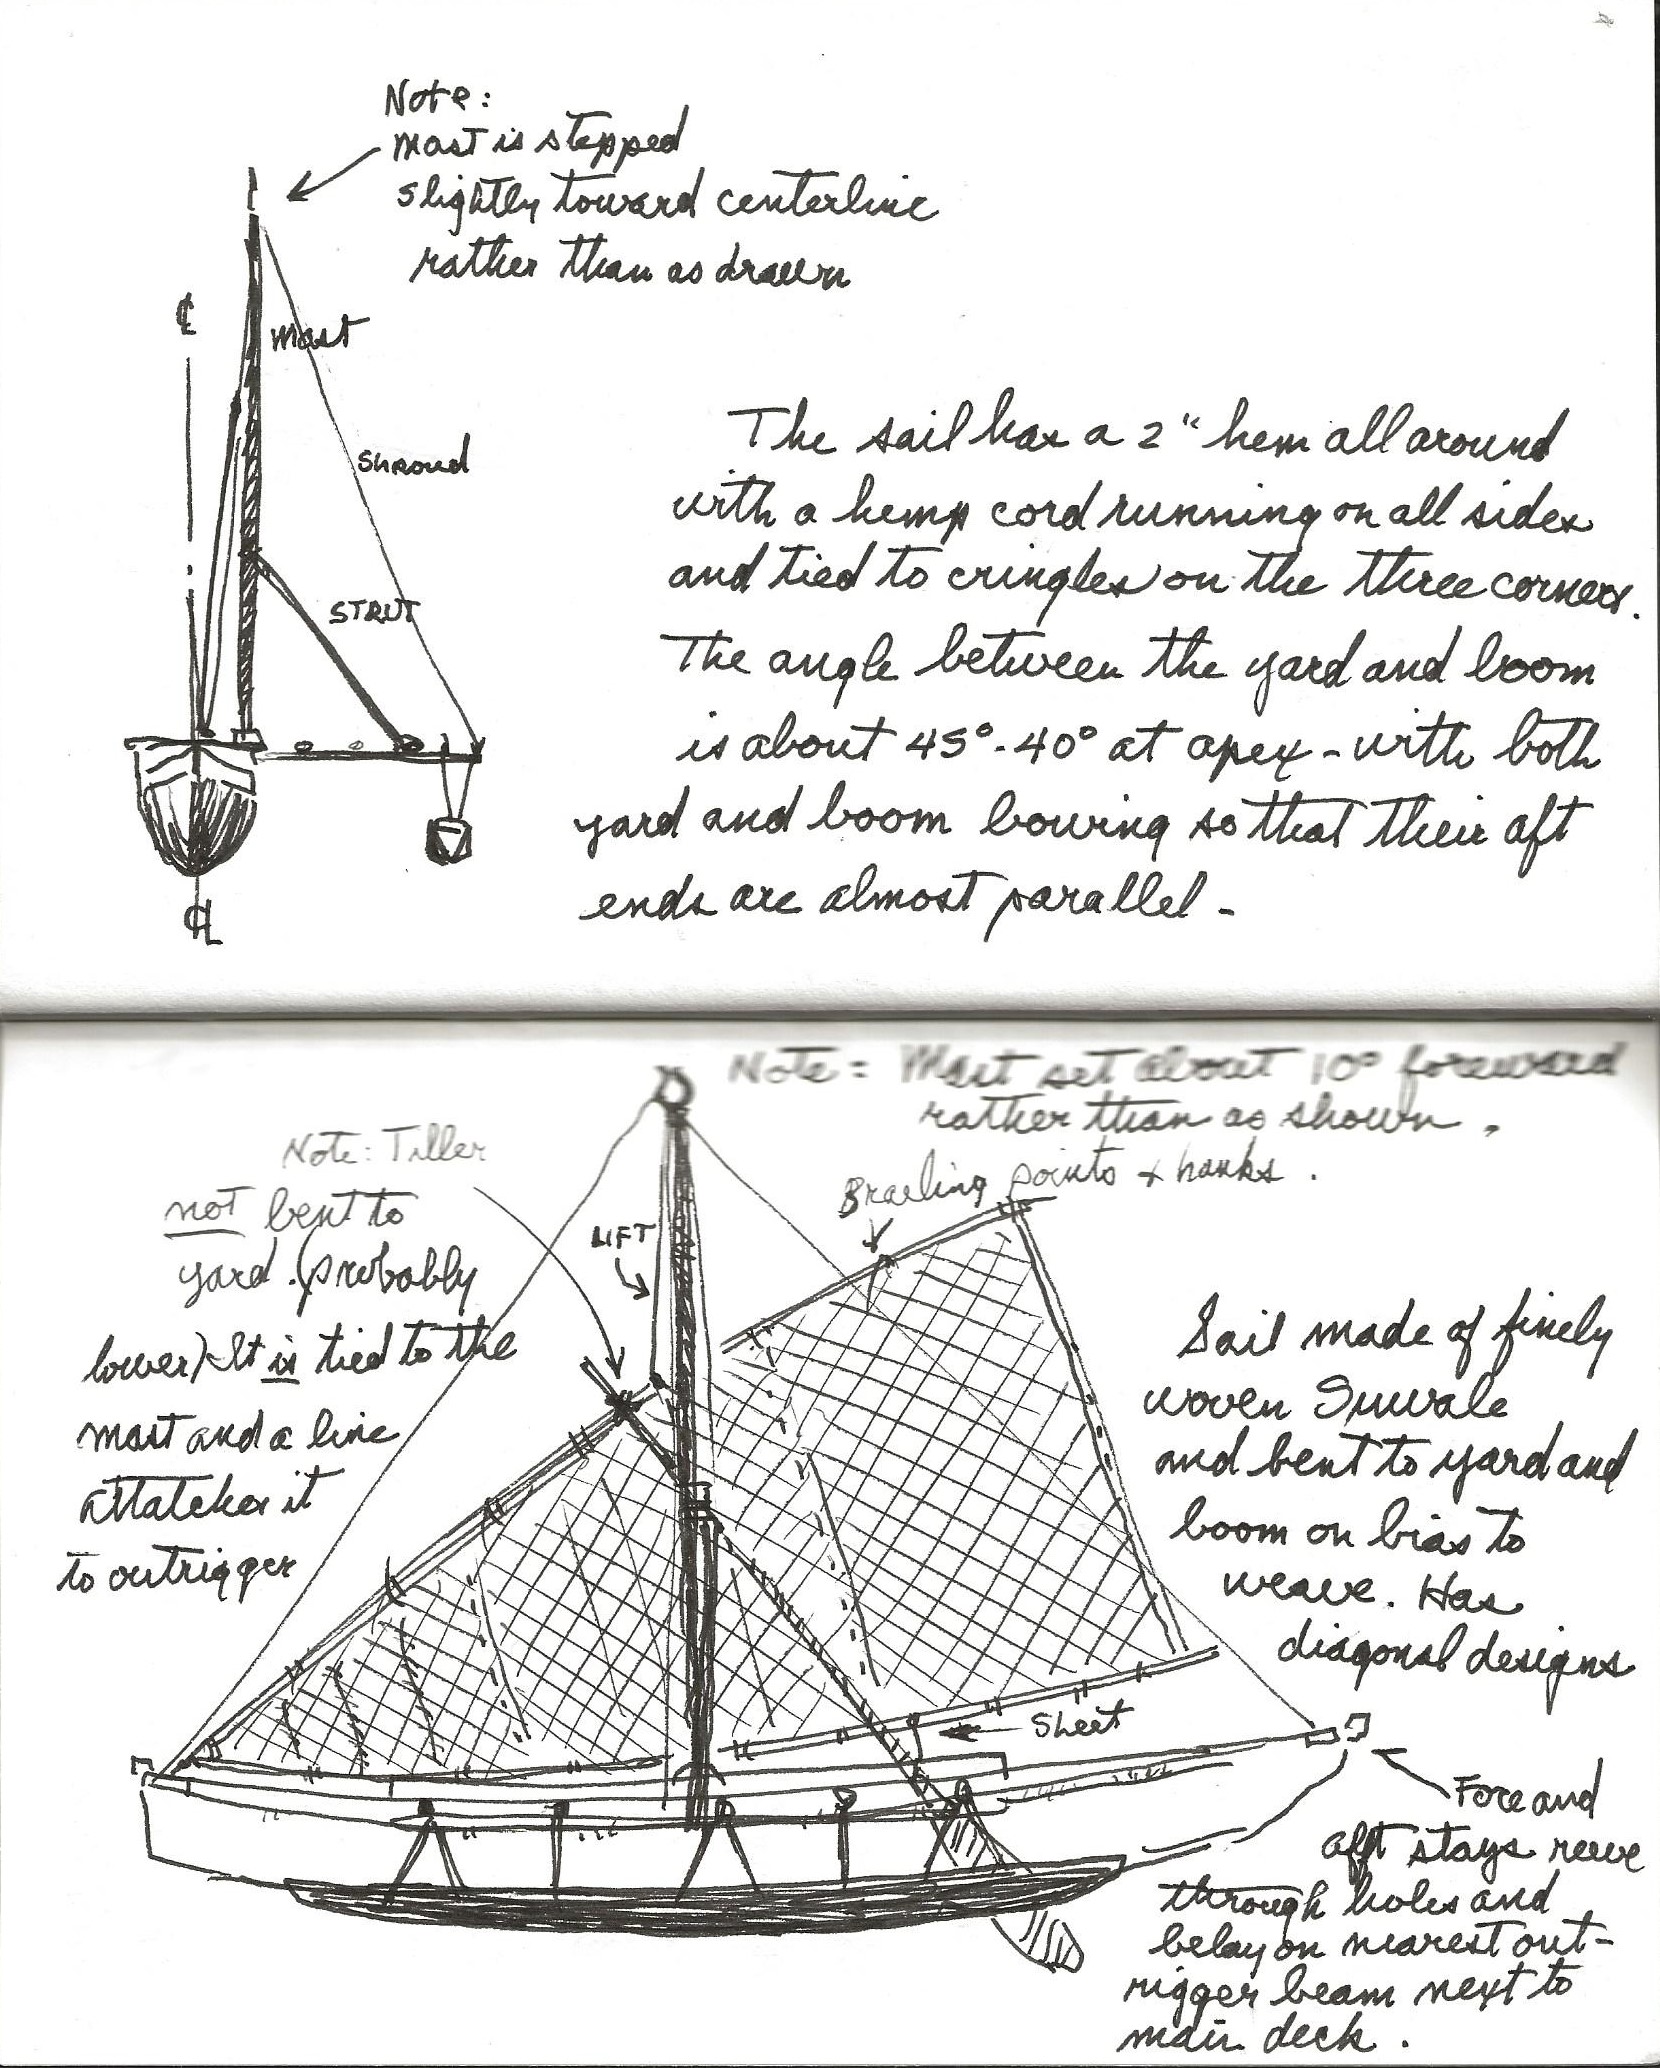 Note:
Mast is stepped
slightly toward centerline
rather than as drawn
℄
Mast
Shroud
STRUT
℄
The sail has a 2" hem all around
with a hemp cord running on all sides
and tied to cringles on the three corners.
The angle between the yard and boom
is about 45°-40° at apex - with both
yard and boom bowing so that their aft
ends are almost parallel -
Note: Mast set about 10° foreward
rather than as shown.
Note: Tiller
not bent to
yard. (probably
lower) - It is tied to the
mast and a line
attatches it
to outrigger
LIFT
Brailing points + hanks.
Sail made of finely
woven
and bent to yard and
boom on bias to
weave. Has
diagonal designs
Sheet
Fore and
aft stays reeve
through holes and
belay on nearest out-
rigger beam next to
main deck.